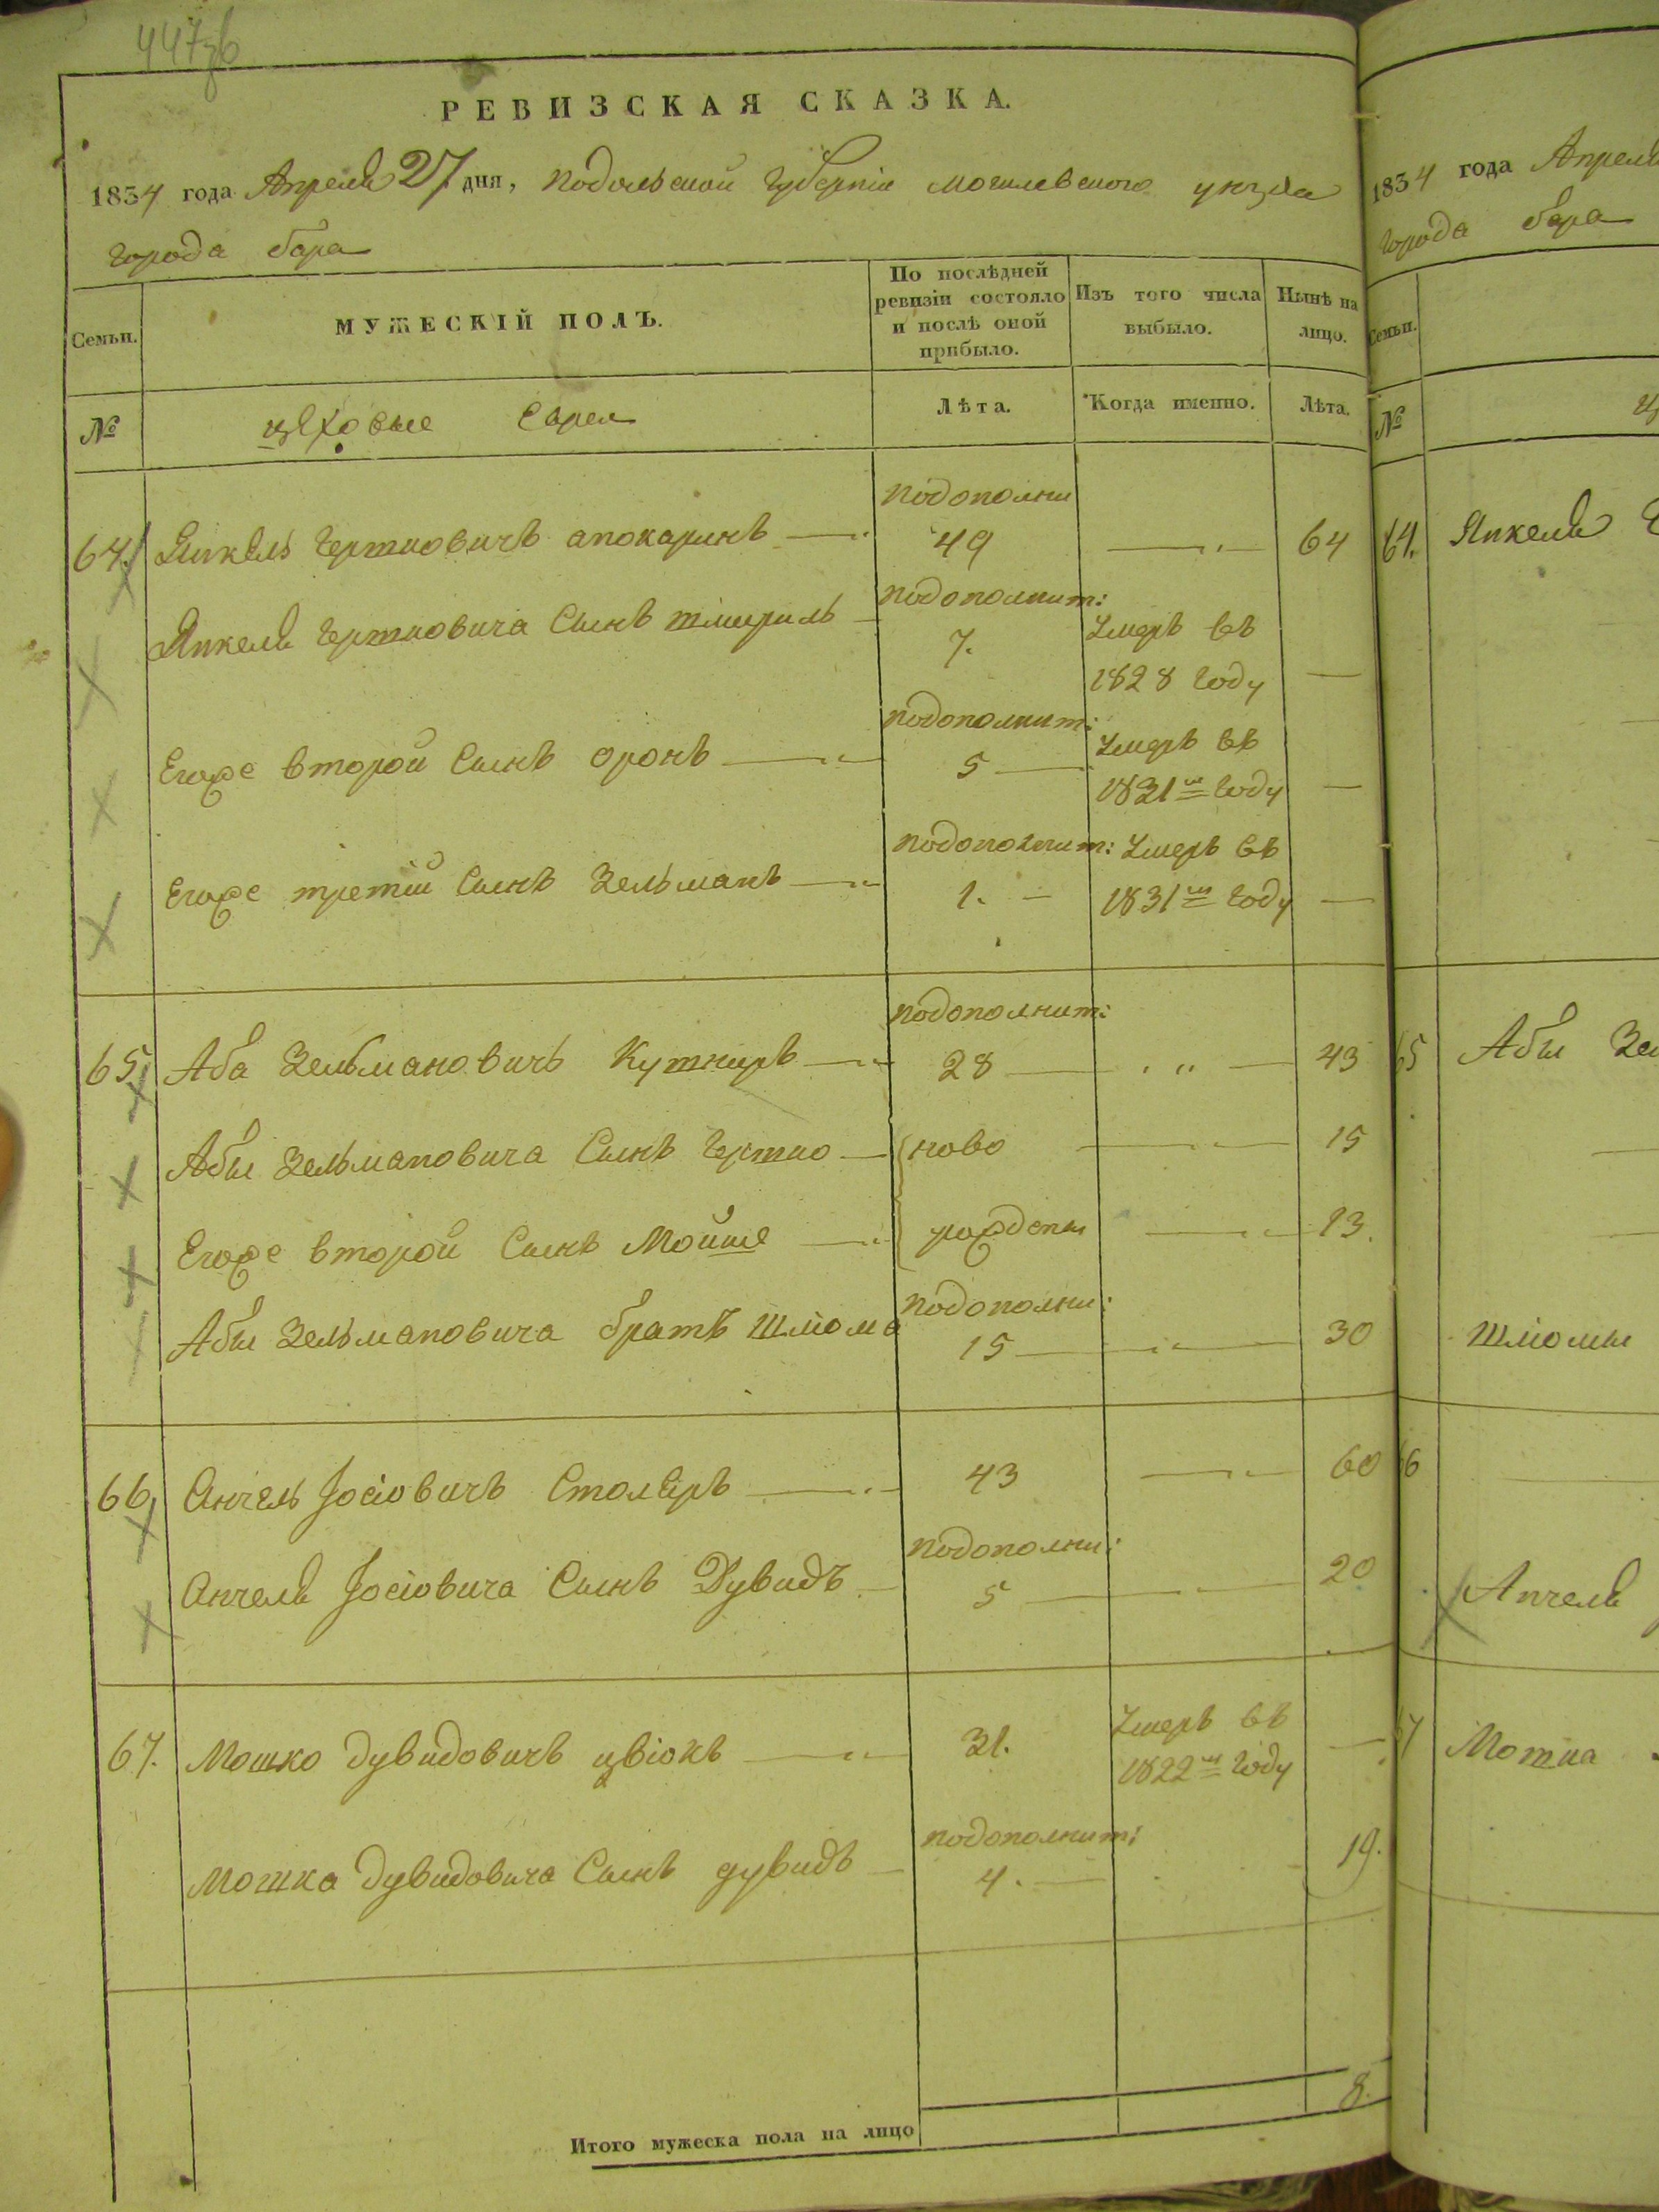 447зв
РЕВИЗСКАЯ СКАЗКА.
1834 года Апреля 27 дня, подольской губерніи могилевского уезда
города бара
Семьи.
МУЖЕСКІЙ ПОЛЪ.
По послѣдней
ревизіи состояло
и послѣ оной
прибыло.
Изъ того числа
выбыло.
Нынѣ на
лицо.
№
цеховые Евреи
Лѣта.
Когда именно.
Лѣта.
подополни
64. Янкель Гершковичъ 49 64
подополнит:
Янкеля Гершковича Сынъ шмериль 7. Умеръ въ
1828 году
подополнит:
Егоже второй Сынъ оронъ 5 Умеръ въ
1831м году
подополнит:
Егоже третій Сынъ Зельманъ 1. Умеръ въ
1831м году
подополнит:
65. Аба Зельмановичъ Кушниръ 28 43
Абы Зельмановича Сынъ Гершко ново 15
Егоже второй Сынъ Мойше рождены 13.
подополни:
Абы Зельмановича братъ шліома 15 30
66. Анчель Іосіовичъ Столяръ 43 60
подополни:
Анчеля Іосіовича Сынъ Дувидъ 5 20
67. Мошко Дувидовичъ цвіокъ 31. Умеръ въ
1822м году
подополнит:
Мошка Дувидовича Сынъ дувидъ 4. 19.
8.
Итого мужеска пола на лицо
1834 года Апреля
города бара
Семьи.
№
64. Янкеля
65 Абы
Шліомы
66
Анчеля
67 Мошка